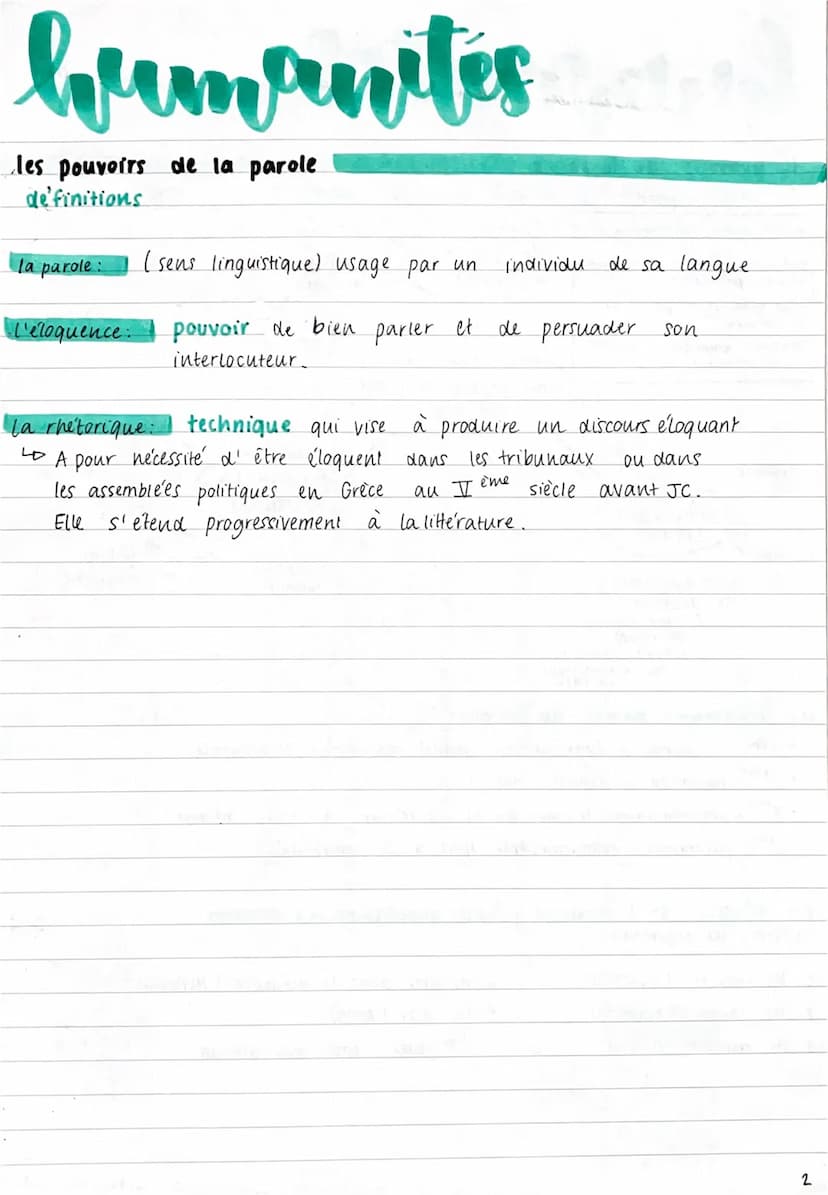 humanités
les pouvoirs de la parole
définitions
la parole: (sens linguistique) usage par un individu de sa langue
l'éloquence: pouvoir de bien parler et de persuader son
interlocuteur.
la rhétorique: technique qui vise à produire un discours éloquant
↳ A pour nécessité d'être éloquent dans les tribunaux ou dans
les assemblées politiques en Grèce au V ème siècle avant JC.
Elle s'étend progressivement à la littérature.
2